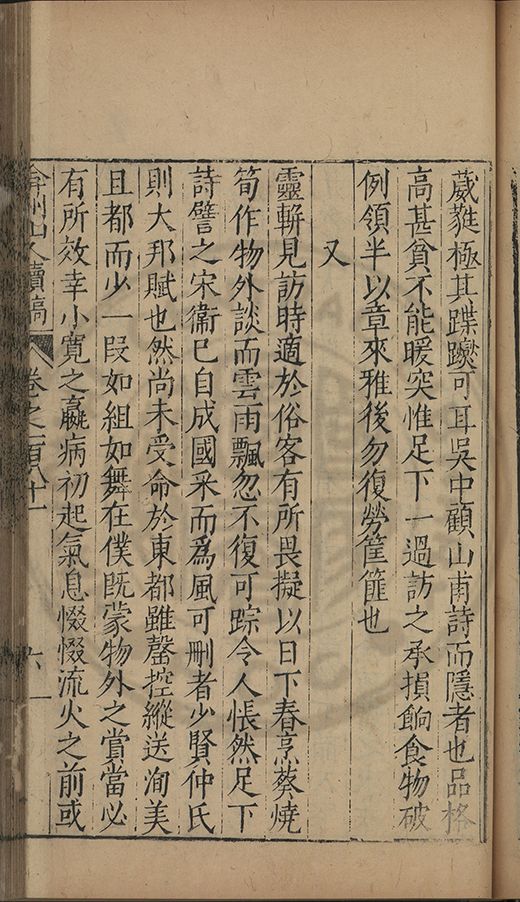 葳蕤極其蹀躞可耳吳中顧山甫詩而隱者也品格
高甚貧不能暖突惟足下一過訪之承損餉食物破
例領半以章來雅後勿復勞筐篚也
又
靈軿見訪時適於俗客有所畏擬以日下舂烹葵燒
筍作物外談而雲雨飄忽不復可踪令人悵然足下
詩譬之宋衞已自成國采而爲風可刪者少賢仲氏
則大邦賦也然尚未受命於東都雖罄控縱送洵美
且都而少一段如組如舞在僕旣蒙物外之賞當必
有所效幸小寬之羸病初起氣息惙惙流火之前或
弇州山人續稿 卷之一百八十一 六